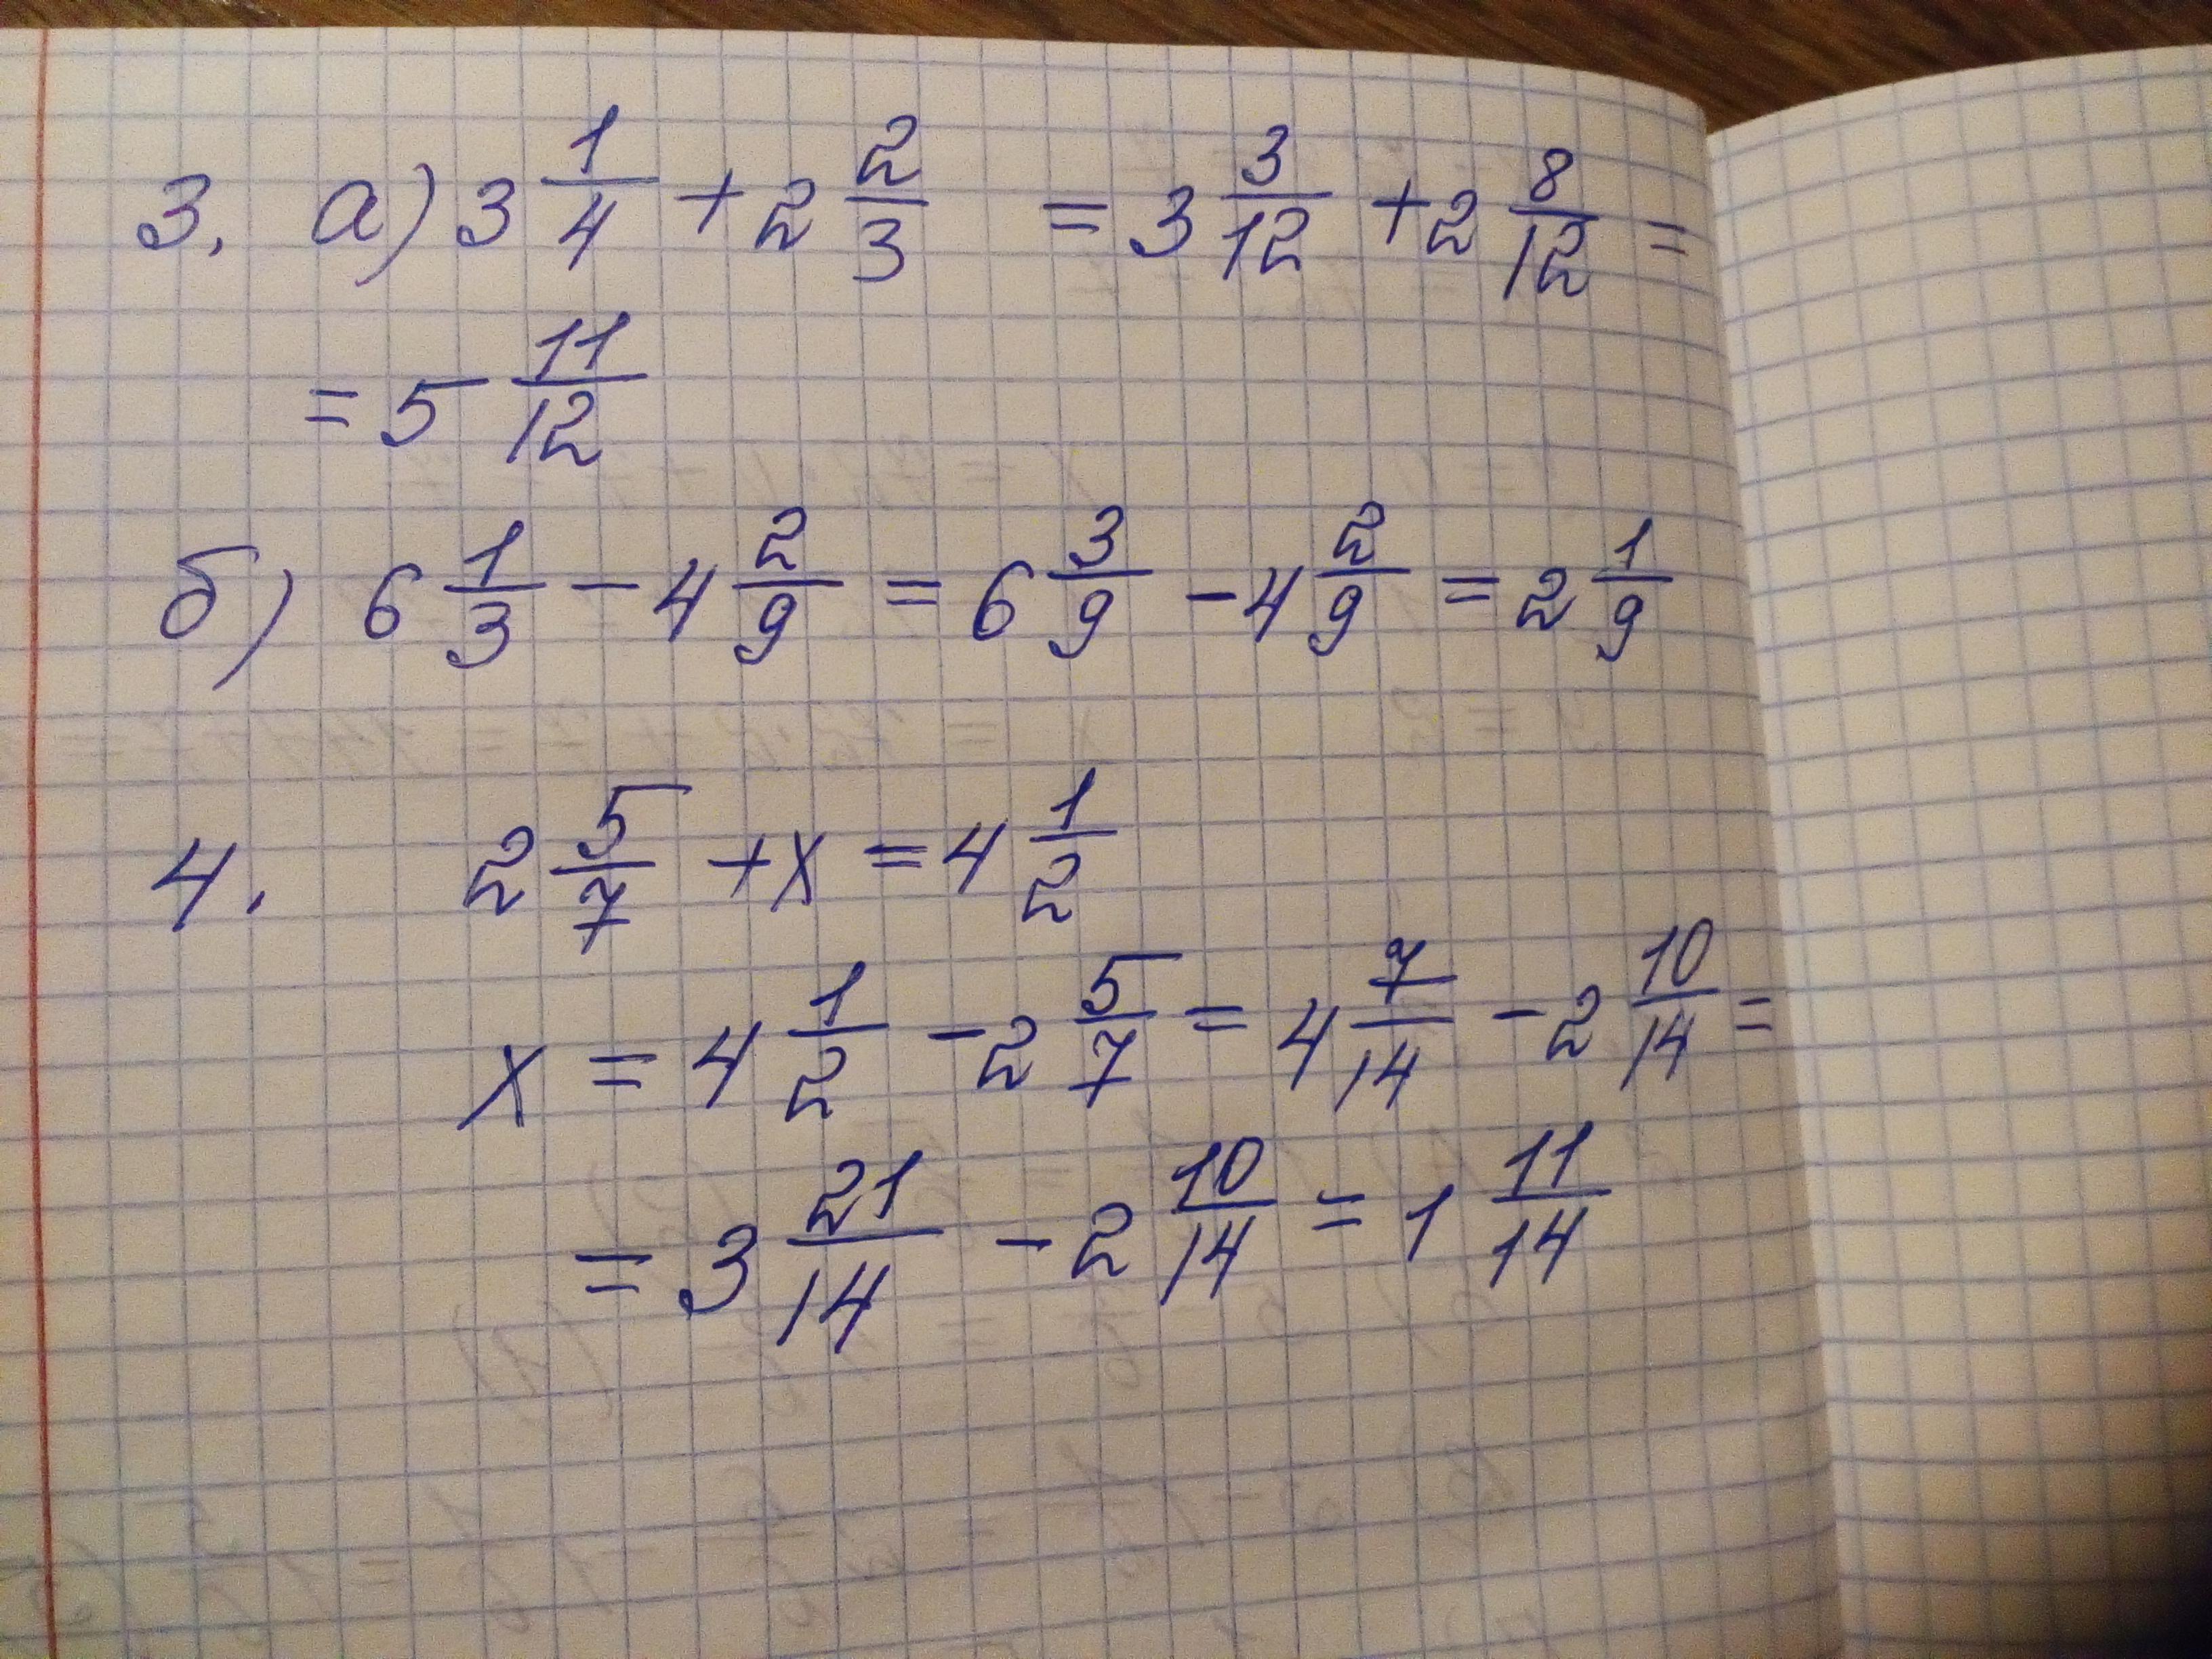 3. а) 3 1/4 + 2 2/3 = 3 3/12 + 2 8/12 =
= 5 11/12
б) 6 1/3 - 4 2/9 = 6 3/9 - 4 2/9 = 2 1/9
4. 2 5/7 + x = 4 1/2
x = 4 1/2 - 2 5/7 = 4 7/14 - 2 10/14 =
= 3 21/14 - 2 10/14 = 1 11/14